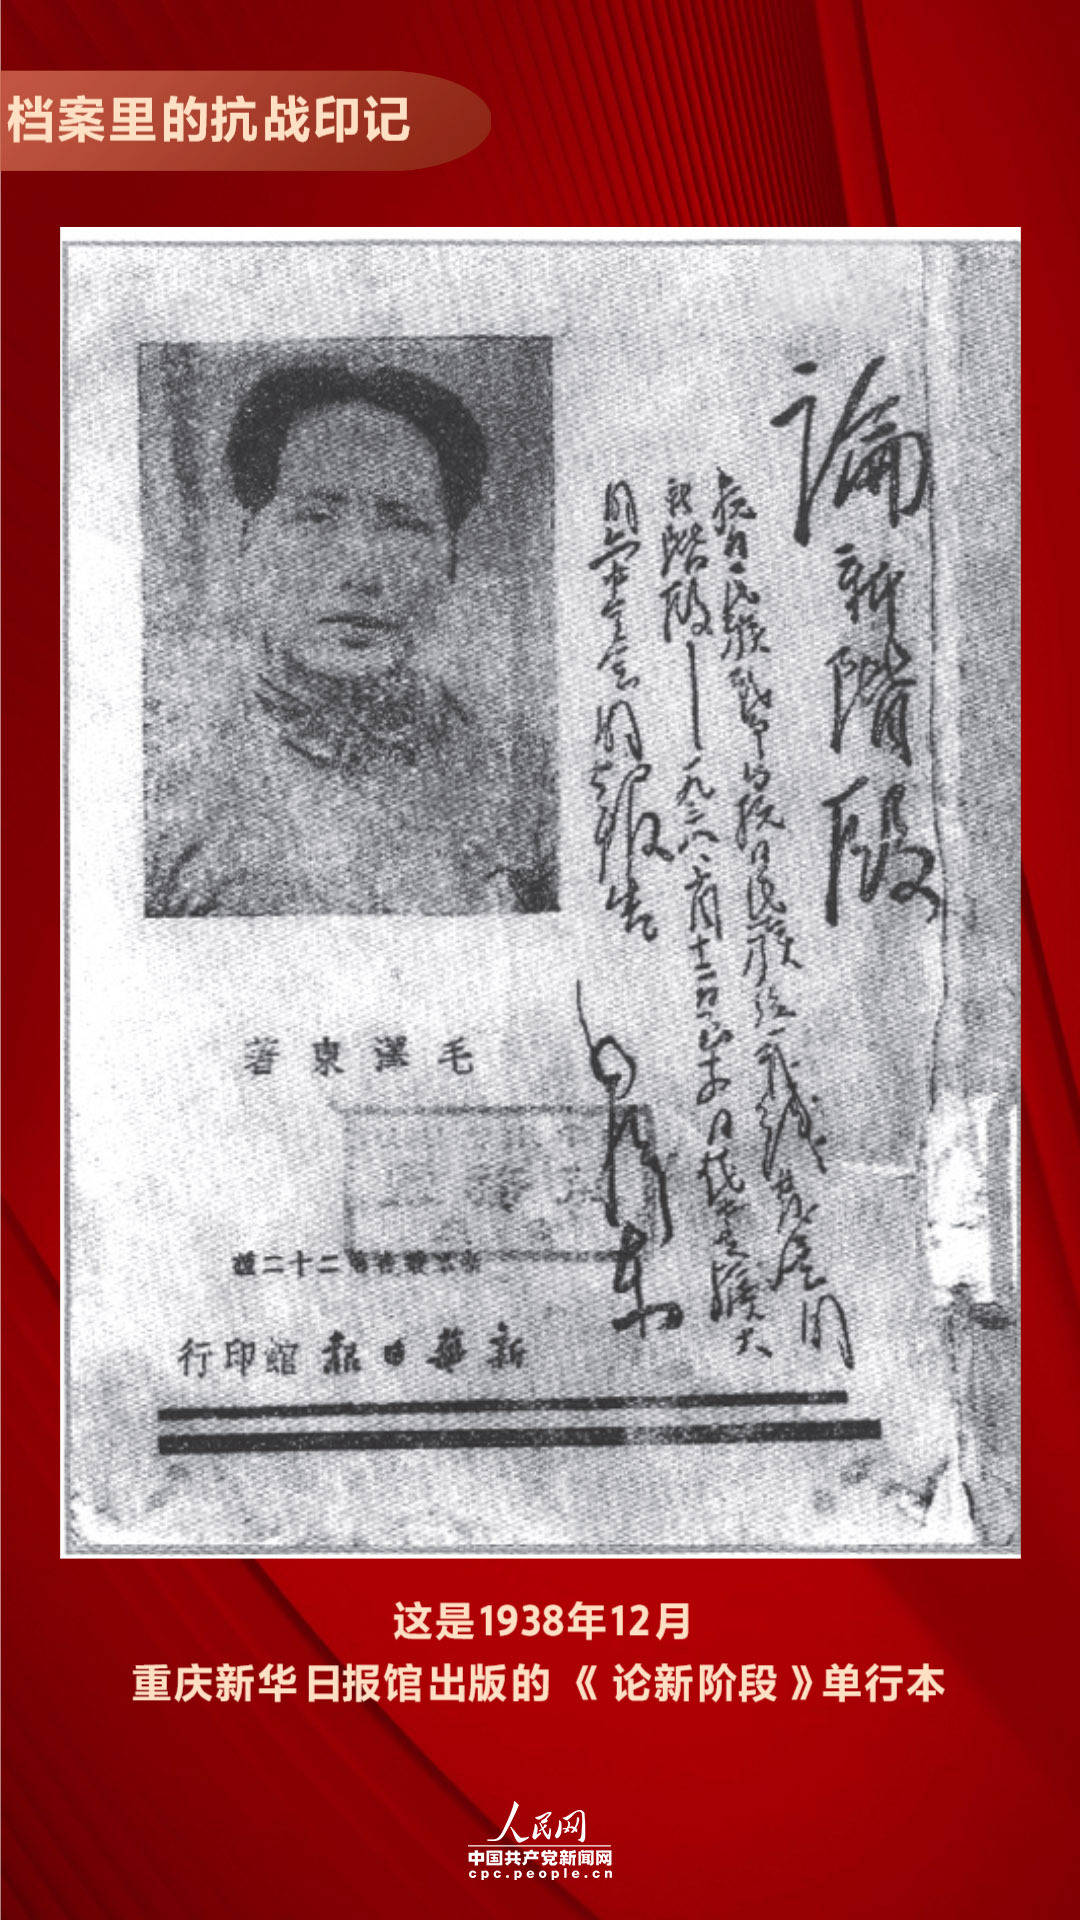 档案里的抗战印记
論新階段
抗日民族战争与抗日民族统一战线发展的
新階段——一九三八、十月十二日至十四日在中共扩大
的六中全会的报告
毛泽东
著東澤毛
行印館報日華新
这是1938年12月
重庆新华日报馆出版的《论新阶段》单行本
人民网
中国共产党新闻网
cpc.people.cn